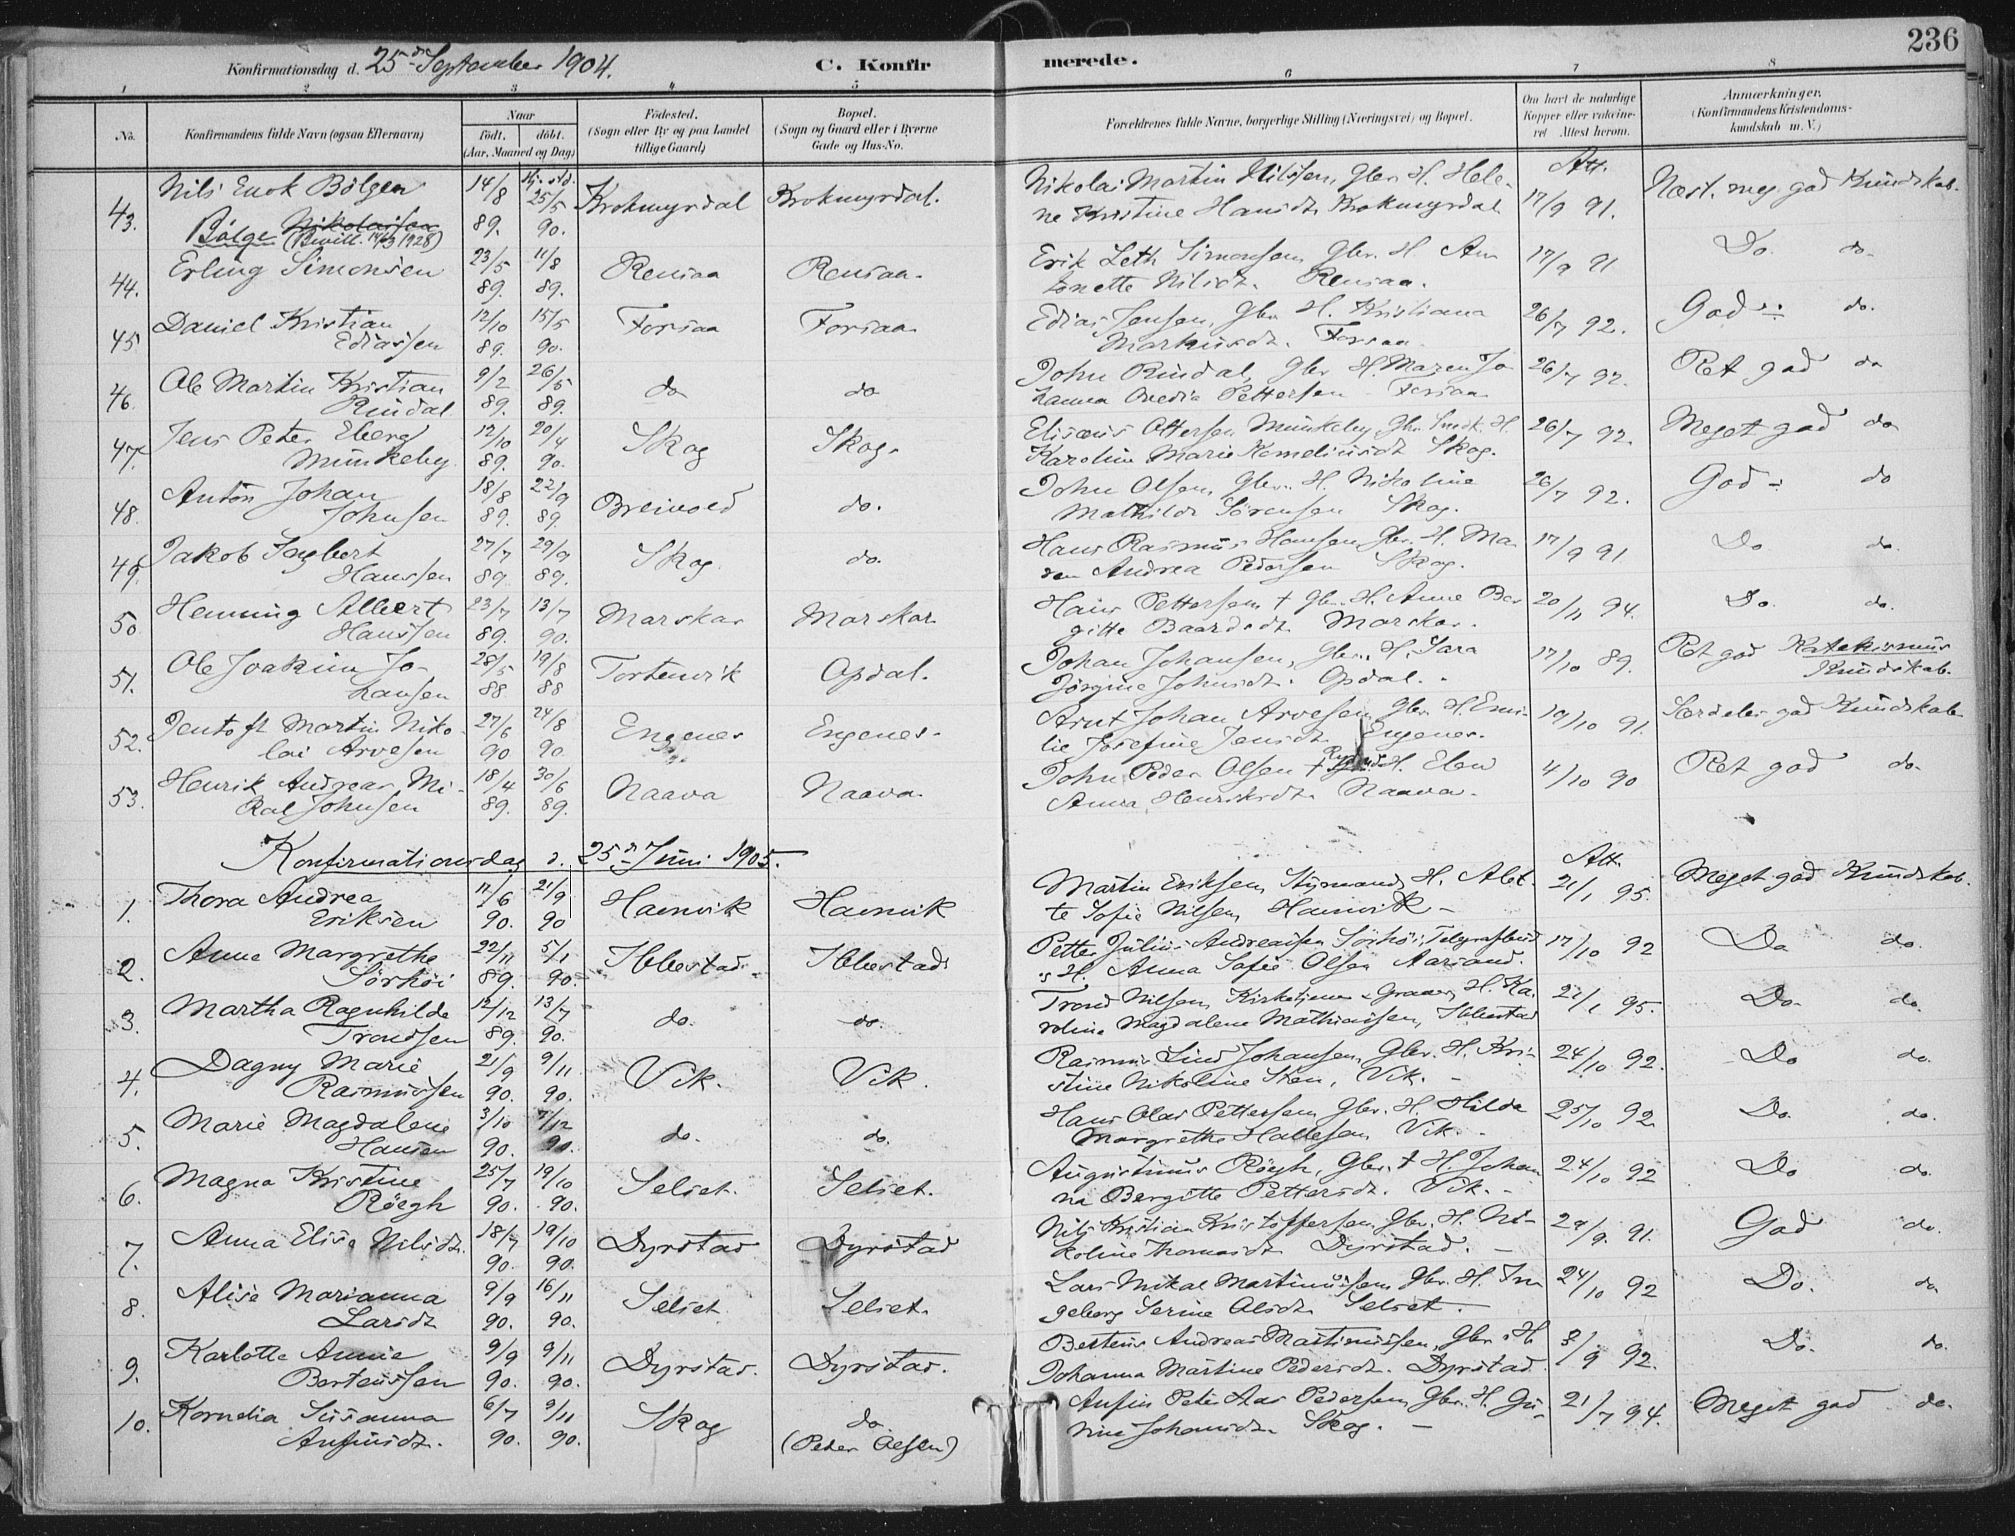 236
Konfirmationsdag d. 25de September 1904. C. Konfirmerede.
1 2 3 4 5 6 7 8
No. Konfirmandens fulde Navn (ogsaa Efternavn) Naar födt. döbt. (Aar, Maaned og Dag) Födested. (Sogn eller By og paa Landet tillige Gaard) Bopæl. (Sogn og Gaard eller i Byerne Gade og Hus-No. Forældrenes fulde Navne, borgerlige Stilling (Næringsvei) og Bopæl. Om havt de naturlige Kopper eller vakcineret Attest herom. Anmærkninger. (Konfirmandens Kristendomskundskab m. V.)
43. Nils Enok Bölgen 14/8 hj. std. 25/5 Krokmyrdal Krokmyrdal. Nikolai Martin Nilssen, Gbr. H. Hele- Att. 17/9 91. Næst. meg. god Kundskab.
Bölge Nikolaisen (Bevill. 14/9 1928) 89. 90. ne Kristine Hansdt. Krokmyrdal
44. Erling Simonsen 23/5 11/8 Rensaa Rensaa. Erik Leth Simonsen Gbr. H. An- 17/9 91 Do. do.
89. 89. tonette Nilsdt. Rensaa.
45 Daniel Kristian 12/10 15/5 Forsaa Forsaa Edias Jensen, Gbr. H. Kristiana 26/7 92. God do.
Ediassen 89. 90. Markusdt. Forsaa.
46. Ole Martin Kristian 9/2 26/5 do do John Rindal, Gbr H. Maren Jo- 26/7 92. Ret god do
Rindal 89. 89. hanna Ovedia Pettersen Forsaa
47. Jens Peter Eberg 12/10 20/4 Skog Skog. Elisæus Ottersen Munkeby, Gbr. Smed. H. 26/7 92. Meget god do
Munkeby. 89. 90. Karoline Marie Korneliusdt Skog.
48. Anton Johan 18/8 22/9 Breivold do. John Olsen, Gbr. H. Nikoline 26/7 92. God do
Johnsen 89. 89. Mathilde Sörensen Skog.
49. Jakob Ingbert 27/7 29/9 Skog. do. Hans Rasmus Hansen Gbr. H. Ma- 17/9 91 Do do.
Hanssen 89. 89. ren Andrea Pedersen Skog.
50. Henning Albert 23/7 13/7 Marskar Marskar Hans Pettersen † Gbr. H. Anne Ber- 20/11 94. Do. do.
Hanssen 89. 90. gitte Baardsdt. Marskar.
51. Ole Joakim Jo- 28/5 19/8 Tortenvik Opdal. Johan Johansen, Gbr. H. Sara 17/10 89. Ret god Katekismus
hansen 88. 88 Jörgine Johnsdt. Opdal. Kundskab.
52. Jentoft Martin Niko- 27/6 24/8 Engenes Engenes. Arnt Johan Arvesen Gbr. H. Emi- 19/10 91. Særdeles god Kundskab
lai Arvesen 90 90 lie Josefine Jensdt. Engenes.
53. Henrik Andreas Mi- 18/4 30/6 Naava Naava. John Peder Olsen † H. Elen 4/10 90 Ret god do.
kal Johnsen 89. 89. Anna Henriksdt. Naava.
Konfirmationsdag d. 25de Juni 1905.
1. Thora Andrea 17/6 21/9 Havnvik Havnvik Martin Eriksen, Styrmand, H. Alet- Att. 21/1 95. Meget god Kundskab.
Eriksen 90. 90 te Sofie Nilsen, Havnvik
2. Anna Margrethe 22/11 5/1 Ibbestad Ibbestad Petter Julius Andreassen Sörhöi, Telegrafbud 17/10 92 Do do.
Sörhöi 89. 90. & H. Anna Sofie Olsen Aarsand.
3. Martha Ragnhilde 12/12 13/7 do. do. Trond Nilsen, Kirketjener & Graver, H. Ka- 21/1 95. Do. do.
Trondsen 89. 90. roline Magdalene Mathiassen, Ibbestad
4. Dagny Marie 21/9 9/11 Vik. Vik. Rasmus Lind Johansen, Gbr. H. Kri- 24/10 92. Do do.
Rasmussen 90. 90. stine Nikoline Sten, Vik.
5. Marie Magdalene 3/10 7/12 do. do. Hans Olai Pettersen, Gbr. H. Hilda 25/10 92. Do. do.
Hansen 90. 90. Margrethe Hallesen, Vik.
6. Magna Kristine 25/7 19/10 Selset. Selset. Augustinus Röegh, Gbr. † H. Johan- 24/10 92 Do do.
Röegh 90. 90. na Bergitte Pettersdt. Vik.
7. Anna Elise Nilsdt. 18/7 19/10 Dyrstad Dyrstad Nils Kristian Kristoffersen, Gbr. H. Ni- 29/9 91. God do.
90. 90. koline Thomasdt. Dyrstad.
8. Alise Marianna 9/9 16/11 Selset Selset. Lars Mikal Martinussen, Gbr. H. In- 24/10 92 Do. do
Larsdt. 90. 90. geborg Serine Olsdt. Selset.
9. Karlotte Annie 9/9 9/11 Dyrstad. Dyrstad. Berteus Andreas Martinussen, Gbr. H. 3/9 92. Do. do.
Berteussen 90. 90. Johanna Martine Pedersdt. Dyrstad.
10. Kornelia Susanna 6/7 9/11 Skog do Anfin Peter Aas Pedersen, Gbr. H. Gu- 21/7 94. Meget god do.
Anfinsdt. 90. 90. (Peder Olsen) rine Johansdt. Skog.